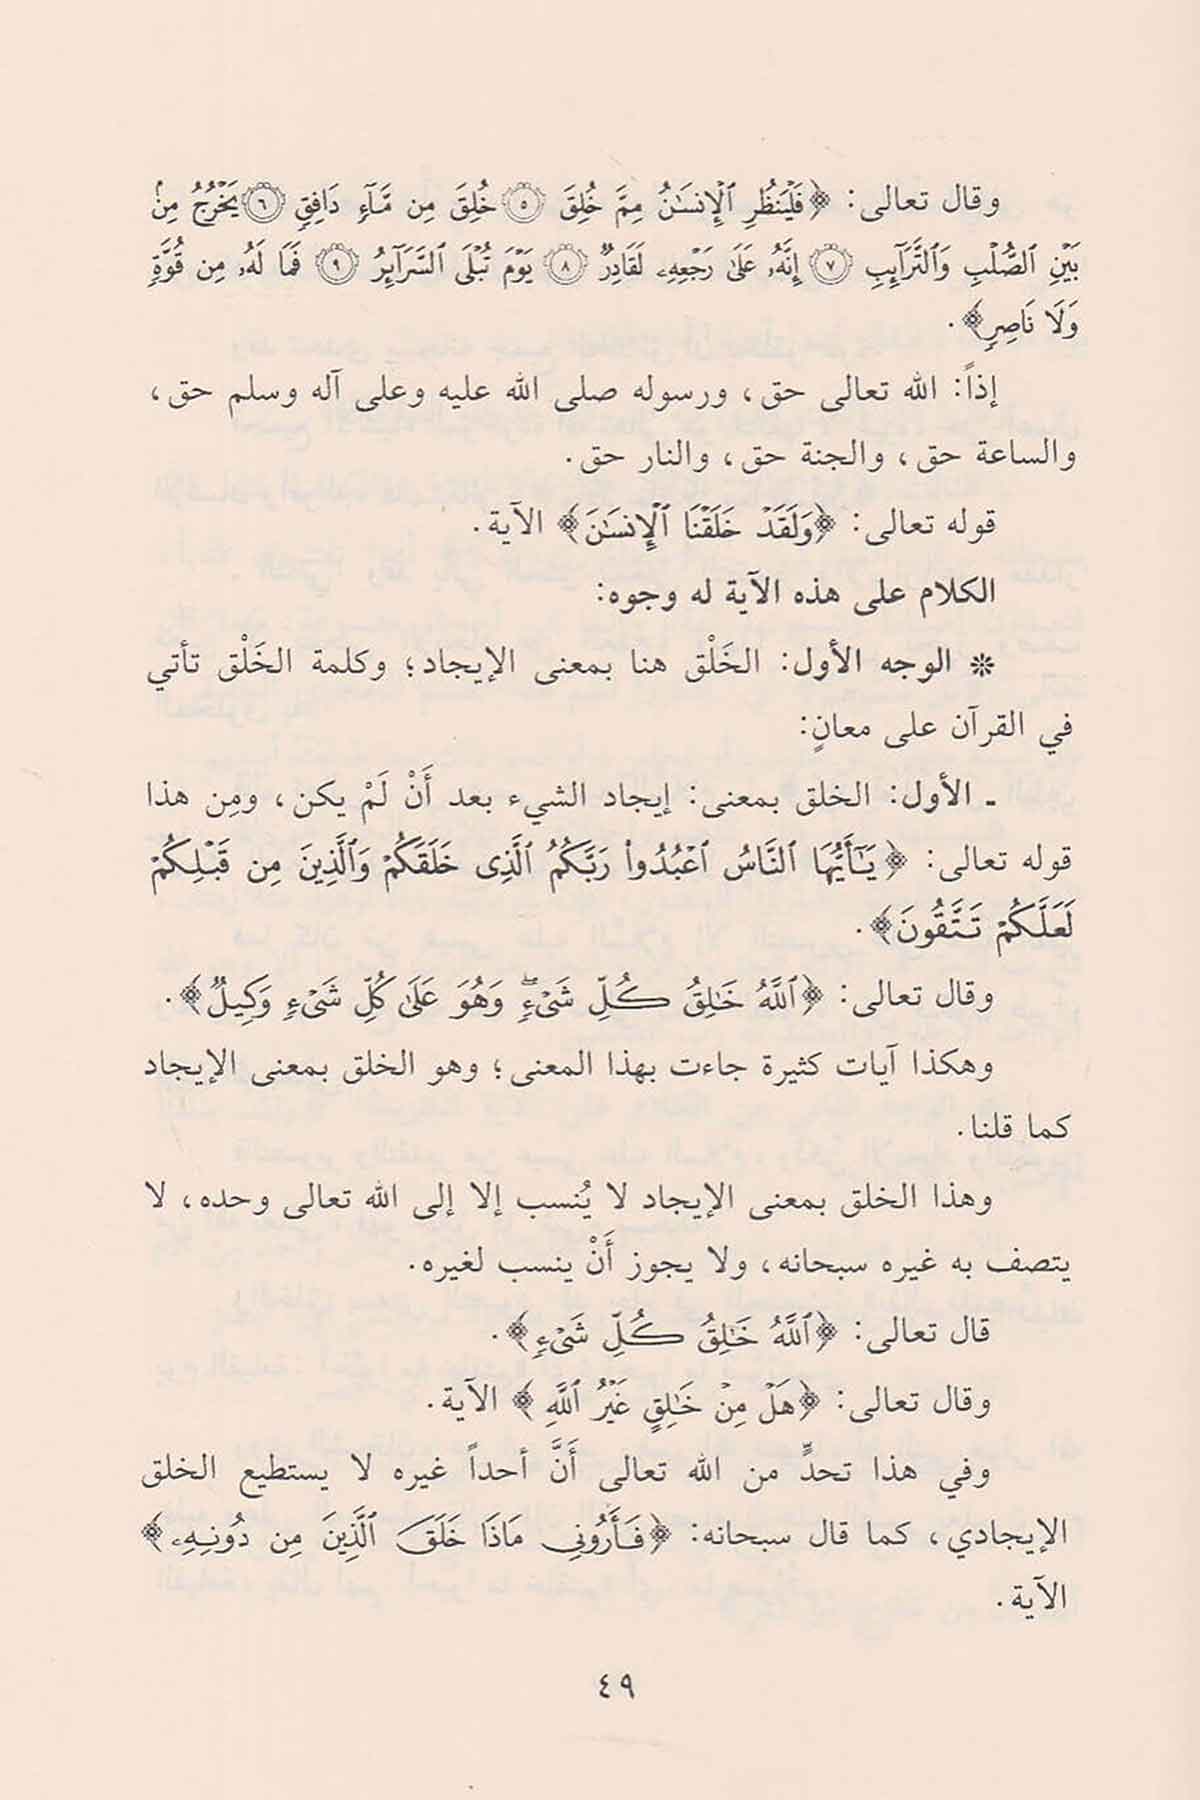 وقال تعالى: ﴿فَلْيَنظُرِ ٱلْإِنسَٰنُ مِمَّ خُلِقَ ۝٥ خُلِقَ مِن مَّآءٍ دَافِقٍ ۝٦ يَخْرُجُ مِنۢ
بَيْنِ ٱلصُّلْبِ وَٱلتَّرَآئِبِ ۝٧ إِنَّهُۥ عَلَىٰ رَجْعِهِۦ لَقَادِرٌ ۝٨ يَوْمَ تُبْلَى ٱلسَّرَآئِرُ ۝٩ فَمَا لَهُۥ مِن قُوَّةٍ
وَلَا نَاصِرٍ﴾.
إذاً: الله تعالى حق، ورسوله صلى الله عليه وعلى آله وسلم حق،
والساعة حق، والجنة حق، والنار حق.
قوله تعالى: ﴿وَلَقَدْ خَلَقْنَا ٱلْإِنسَٰنَ﴾ الآية.
الكلام على هذه الآية له وجوه:
❊ الوجه الأول: الخَلْق هنا بمعنى الإيجاد؛ وكلمة الخَلْق تأتي
في القرآن على معانٍ:
ـ الأول: الخلق بمعنى: إيجاد الشيء بعد أَنْ لَمْ يكن، ومِن هذا
قوله تعالى: ﴿يَٰٓأَيُّهَا ٱلنَّاسُ ٱعْبُدُوا۟ رَبَّكُمُ ٱلَّذِى خَلَقَكُمْ وَٱلَّذِينَ مِن قَبْلِكُمْ
لَعَلَّكُمْ تَتَّقُونَ﴾.
وقال تعالى: ﴿ٱللَّهُ خَٰلِقُ كُلِّ شَىْءٍ ۖ وَهُوَ عَلَىٰ كُلِّ شَىْءٍ وَكِيلٌ﴾.
وهكذا آيات كثيرة جاءت بهذا المعنى؛ وهو الخلق بمعنى الإيجاد
كما قلنا.
وهذا الخلق بمعنى الإيجاد لا يُنسب إلا إلى الله تعالى وحده، لا
يتصف به غيره سبحانه، ولا يجوز أَنْ ينسب لغيره.
قال تعالى: ﴿ٱللَّهُ خَٰلِقُ كُلِّ شَىْءٍ﴾.
وقال تعالى: ﴿هَلْ مِنْ خَٰلِقٍ غَيْرُ ٱللَّهِ﴾ الآية.
وفي هذا تحدٍّ من الله تعالى أَنَّ أحداً غيره لا يستطيع الخلق
الإيجادي، كما قال سبحانه: ﴿فَأَرُونِى مَاذَا خَلَقَ ٱلَّذِينَ مِن دُونِهِۦ﴾
الآية.
٤٩